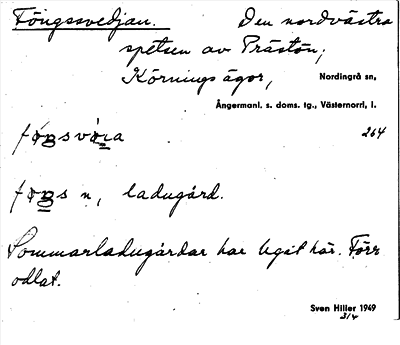 Föngsvedjan. Den nordvästra
spetsen av Prästön,
Körnings ägor, Nordingrå sn,
Ångermanl. s. doms. tg., Västernorrl, l.
264
s n, ladugård.
Sommarladugårdar har legat här. Förr
odlat.
Sven Hiller 1949
3/4